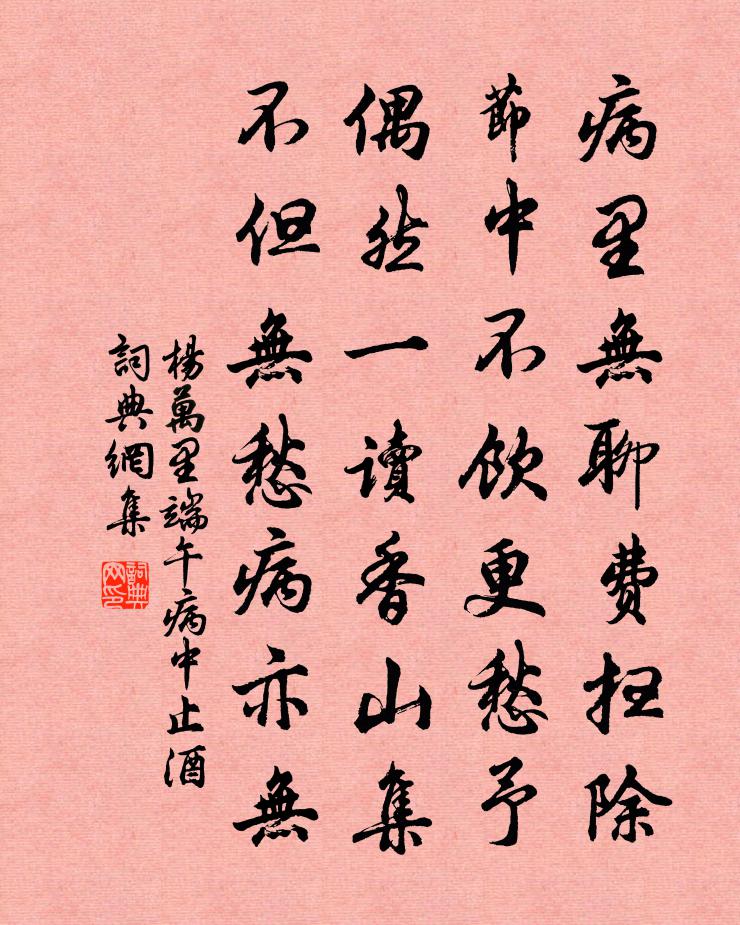 病里無聊費扫除
節中不飲更愁予
偶然一讀香山集
不但無愁病亦無
楊萬里端午病中止酒
詞典網集
詞典网印